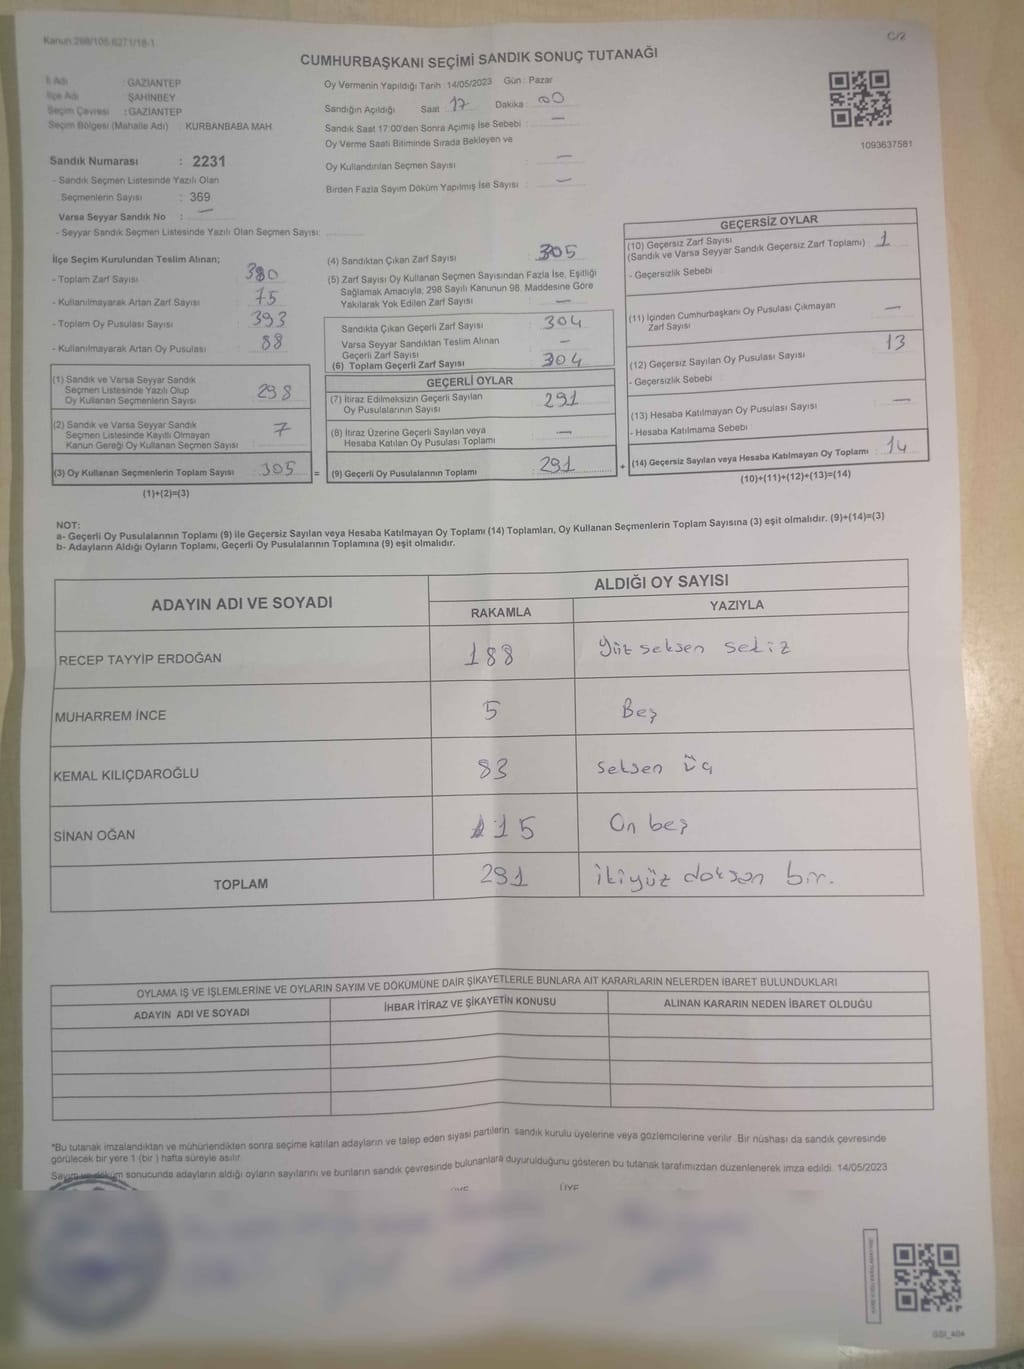 Kanun:298/105,6271/18-1
C/2
CUMHURBAŞKANI SEÇİMİ SANDIK SONUÇ TUTANAĞI
İl Adı : GAZİANTEP
İlçe Adı : ŞAHİNBEY
Seçim Çevresi : GAZİANTEP
Seçim Bölgesi (Mahalle Adı) : KURBANBABA MAH.
Oy Vermenin Yapıldığı Tarih : 14/05/2023 Gün : Pazar
Sandığın Açıldığı Saat : 17 Dakika : 00
Sandık Saat 17:00'den Sonra Açımış İse Sebebi : —
Oy Verme Saati Bitiminde Sırada Bekleyen ve
Oy Kullandırılan Seçmen Sayısı : —
Birden Fazla Sayım Döküm Yapılmış İse Sayısı : —
1093637581
Sandık Numarası : 2231
- Sandık Seçmen Listesinde Yazılı Olan
Seçmenlerin Sayısı : 369
Varsa Seyyar Sandık No : —
- Seyyar Sandık Seçmen Listesinde Yazılı Olan Seçmen Sayısı:
İlçe Seçim Kurulundan Teslim Alınan;
- Toplam Zarf Sayısı : 380
- Kullanılmayarak Artan Zarf Sayısı : 75
- Toplam Oy Pusulası Sayısı : 393
- Kullanılmayarak Artan Oy Pusulası : 88
(1) Sandık ve Varsa Seyyar Sandık
Seçmen Listesinde Yazılı Olup
Oy Kullanan Seçmenlerin Sayısı 298
(2) Sandık ve Varsa Seyyar Sandık
Seçmen Listesinde Kayıtlı Olmayan
Kanun Gereği Oy Kullanan Seçmen Sayısı : 7
(3) Oy Kullanan Seçmenlerin Toplam Sayısı : 305 =
(1)+(2)=(3)
(4) Sandıktan Çıkan Zarf Sayısı : 305
(5) Zarf Sayısı Oy Kullanan Seçmen Sayısından Fazla İse, Eşitliği
Sağlamak Amacıyla, 298 Sayılı Kanunun 98. Maddesine Göre
Yakılarak Yok Edilen Zarf Sayısı : —
Sandıkta Çıkan Geçerli Zarf Sayısı : 304
Varsa Seyyar Sandıktan Teslim Alınan
Geçerli Zarf Sayısı : —
(6) Toplam Geçerli Zarf Sayısı : 304
GEÇERLİ OYLAR
(7) İtiraz Edilmeksizin Geçerli Sayılan
Oy Pusulalarının Sayısı : 291
(8) İtiraz Üzerine Geçerli Sayılan veya
Hesaba Katılan Oy Pusulası Toplamı : —
(9) Geçerli Oy Pusulalarının Toplamı : 291 +
GEÇERSİZ OYLAR
(10) Geçersiz Zarf Sayısı
(Sandık ve Varsa Seyyar Sandık Geçersiz Zarf Toplamı) : 1
- Geçersizlik Sebebi
(11) İçinden Cumhurbaşkanı Oy Pusulası Çıkmayan
Zarf Sayısı : —
(12) Geçersiz Sayılan Oy Pusulası Sayısı : 13
- Geçersizlik Sebebi
(13) Hesaba Katılmayan Oy Pusulası Sayısı : —
- Hesaba Katılmama Sebebi
(14) Geçersiz Sayılan veya Hesaba Katılmayan Oy Toplamı : 14
(10)+(11)+(12)+(13)=(14)
NOT:
a- Geçerli Oy Pusulalarının Toplamı (9) ile Geçersiz Sayılan veya Hesaba Katılmayan Oy Toplamı (14) Toplamları, Oy Kullanan Seçmenlerin Toplam Sayısına (3) eşit olmalıdır. (9)+(14)=(3)
b- Adayların Aldığı Oyların Toplamı, Geçerli Oy Pusulalarının Toplamına (9) eşit olmalıdır.
ADAYIN ADI VE SOYADI ALDIĞI OY SAYISI
RAKAMLA YAZIYLA
RECEP TAYYİP ERDOĞAN 188 Yüz seksen sekiz
MUHARREM İNCE 5 Beş
KEMAL KILIÇDAROĞLU 83 seksen üç
SİNAN OĞAN 15 On beş
TOPLAM 291 ikiyüz doksan bir.
OYLAMA İŞ VE İŞLEMLERİNE VE OYLARIN SAYIM VE DÖKÜMÜNE DAİR ŞİKAYETLERLE BUNLARA AİT KARARLARIN NELERDEN İBARET BULUNDUKLARI
ADAYIN ADI VE SOYADI İHBAR İTİRAZ VE ŞİKAYETİN KONUSU ALINAN KARARIN NEDEN İBARET OLDUĞU
*Bu tutanak imzalandıktan ve mühürlendikten sonra seçime katılan adayların ve talep eden siyasi partilerin sandık kurulu üyelerine veya gözlemcilerine verilir. Bir nüshası da sandık çevresinde
görülecek bir yere 1 (bir ) hafta süreyle asılır.
Sayım ve döküm sonucunda adayların aldığı oyların sayılarını ve bunların sandık çevresinde bulunanlara duyurulduğunu gösteren bu tutanak tarafımızdan düzenlenerek imza edildi. 14/05/2023
ÜYE
GSI_404